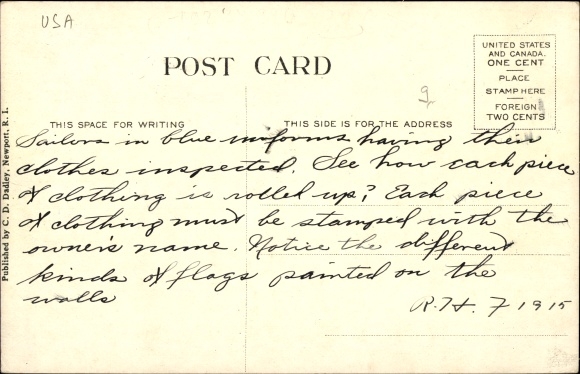 USA
POST CARD
UNITED STATES
AND CANADA.
ONE CENT
PLACE
STAMP HERE
FOREIGN
TWO CENTS
THIS SPACE FOR WRITING
THIS SIDE IS FOR THE ADDRESS
Published by C. D. Dudley, Newport, R. I.
Sailors in blue uniforms having their
clothes inspected. See how each piece
of clothing is rolled up? Each piece
of clothing must be stamped with the
owner's name. Notice the different
kinds of flags painted on the
walls
R. H. 7 1915